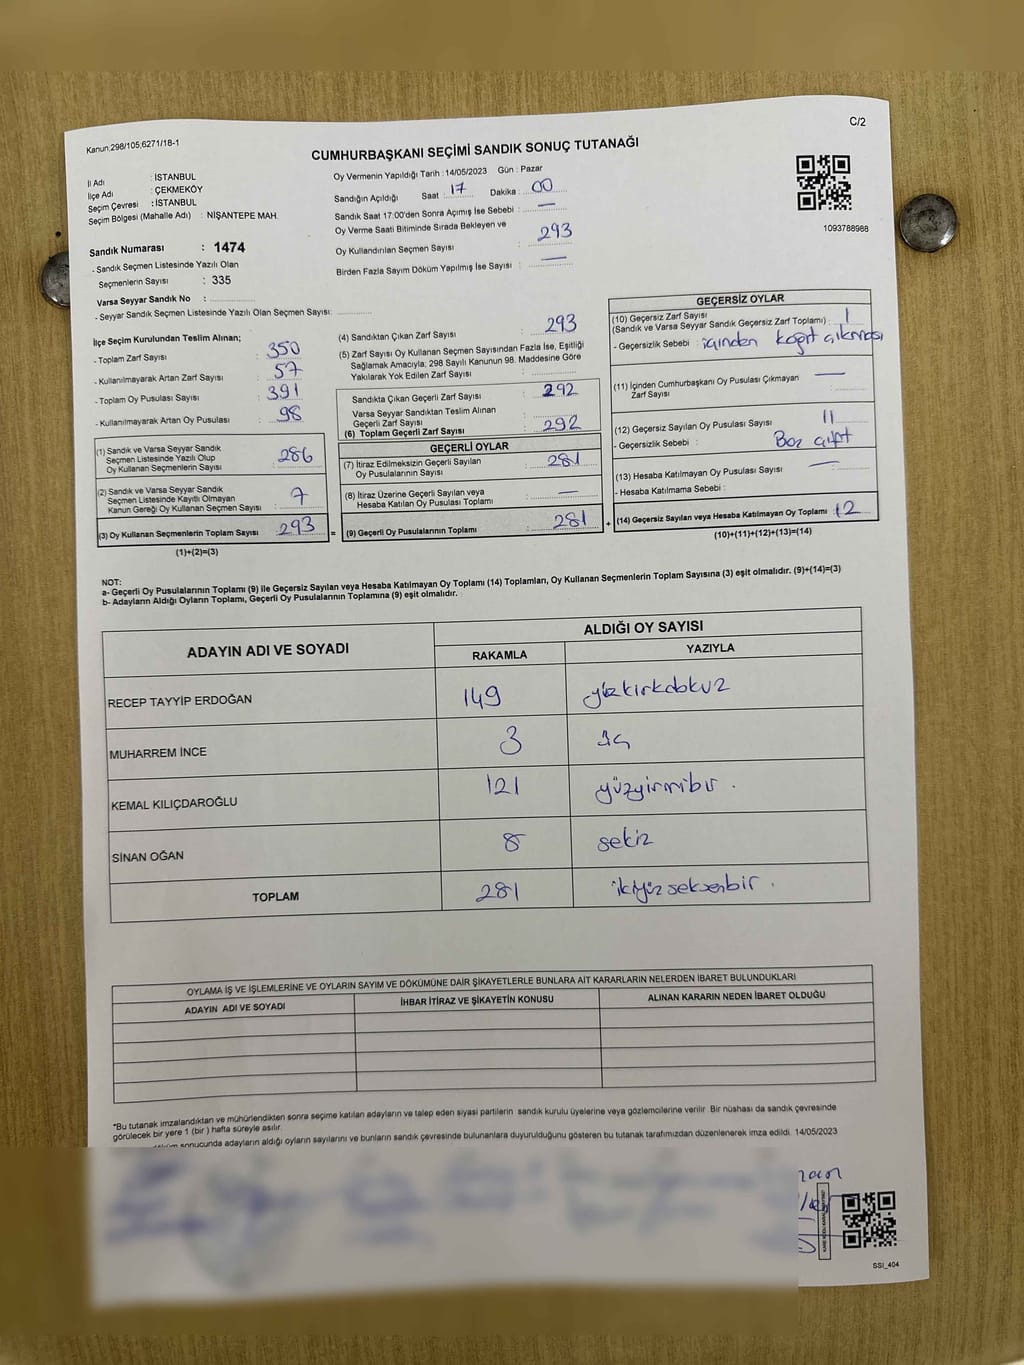 Kanun:298/105,6271/18-1
C/2
CUMHURBAŞKANI SEÇİMİ SANDIK SONUÇ TUTANAĞI
İl Adı : İSTANBUL
İlçe Adı : ÇEKMEKÖY
Seçim Çevresi : İSTANBUL
Seçim Bölgesi (Mahalle Adı) : NİŞANTEPE MAH.
Sandık Numarası : 1474
- Sandık Seçmen Listesinde Yazılı Olan
Seçmenlerin Sayısı : 335
Varsa Seyyar Sandık No :
- Seyyar Sandık Seçmen Listesinde Yazılı Olan Seçmen Sayısı:
Oy Vermenin Yapıldığı Tarih : 14/05/2023 Gün : Pazar
Sandığın Açıldığı Saat : 17 Dakika : 00
Sandık Saat 17:00'den Sonra Açımış İse Sebebi : —
Oy Verme Saati Bitiminde Sırada Bekleyen ve
Oy Kullandırılan Seçmen Sayısı : 293
Birden Fazla Sayım Döküm Yapılmış İse Sayısı : —
1093788988
İlçe Seçim Kurulundan Teslim Alınan;
- Toplam Zarf Sayısı : 350
- Kullanılmayarak Artan Zarf Sayısı : 57
- Toplam Oy Pusulası Sayısı : 391
- Kullanılmayarak Artan Oy Pusulası : 98
(1) Sandık ve Varsa Seyyar Sandık
Seçmen Listesinde Yazılı Olup
Oy Kullanan Seçmenlerin Sayısı : 286
(2) Sandık ve Varsa Seyyar Sandık
Seçmen Listesinde Kayıtlı Olmayan
Kanun Gereği Oy Kullanan Seçmen Sayısı : 7
(3) Oy Kullanan Seçmenlerin Toplam Sayısı : 293 =
(1)+(2)=(3)
(4) Sandıktan Çıkan Zarf Sayısı : 293
(5) Zarf Sayısı Oy Kullanan Seçmen Sayısından Fazla İse, Eşitliği
Sağlamak Amacıyla; 298 Sayılı Kanunun 98. Maddesine Göre
Yakılarak Yok Edilen Zarf Sayısı :
Sandıkta Çıkan Geçerli Zarf Sayısı : 292
Varsa Seyyar Sandıktan Teslim Alınan
Geçerli Zarf Sayısı :
(6) Toplam Geçerli Zarf Sayısı : 292
GEÇERLİ OYLAR
(7) İtiraz Edilmeksizin Geçerli Sayılan
Oy Pusulalarının Sayısı : 281
(8) İtiraz Üzerine Geçerli Sayılan veya
Hesaba Katılan Oy Pusulası Toplamı : —
(9) Geçerli Oy Pusulalarının Toplamı : 281 +
GEÇERSİZ OYLAR
(10) Geçersiz Zarf Sayısı
(Sandık ve Varsa Seyyar Sandık Geçersiz Zarf Toplamı) : 1
- Geçersizlik Sebebi : içinden kağıt çıkması
(11) İçinden Cumhurbaşkanı Oy Pusulası Çıkmayan
Zarf Sayısı : —
(12) Geçersiz Sayılan Oy Pusulası Sayısı : 11
- Geçersizlik Sebebi : Boş çift
(13) Hesaba Katılmayan Oy Pusulası Sayısı : —
- Hesaba Katılmama Sebebi :
(14) Geçersiz Sayılan veya Hesaba Katılmayan Oy Toplamı : 12
(10)+(11)+(12)+(13)=(14)
NOT:
a- Geçerli Oy Pusulalarının Toplamı (9) ile Geçersiz Sayılan veya Hesaba Katılmayan Oy Toplamı (14) Toplamları, Oy Kullanan Seçmenlerin Toplam Sayısına (3) eşit olmalıdır. (9)+(14)=(3)
b- Adayların Aldığı Oyların Toplamı, Geçerli Oy Pusulalarının Toplamına (9) eşit olmalıdır.
ADAYIN ADI VE SOYADI ALDIĞI OY SAYISI
RAKAMLA YAZIYLA
RECEP TAYYİP ERDOĞAN 149 yüzkırkdokuz
MUHARREM İNCE 3 üç
KEMAL KILIÇDAROĞLU 121 yüzyirmibir.
SİNAN OĞAN 8 sekiz
TOPLAM 281 ikiyüzseksenbir.
OYLAMA İŞ VE İŞLEMLERİNE VE OYLARIN SAYIM VE DÖKÜMÜNE DAİR ŞİKAYETLERLE BUNLARA AİT KARARLARIN NELERDEN İBARET BULUNDUKLARI
ADAYIN ADI VE SOYADI İHBAR İTİRAZ VE ŞİKAYETİN KONUSU ALINAN KARARIN NEDEN İBARET OLDUĞU
*Bu tutanak imzalandıktan ve mühürlendikten sonra seçime katılan adayların ve talep eden siyasi partilerin sandık kurulu üyelerine veya gözlemcilerine verilir. Bir nüshası da sandık çevresinde
görülecek bir yere 1 (bir) hafta süreyle asılır.
sonucunda adayların aldığı oyların sayılarını ve bunların sandık çevresinde bulunanlara duyurulduğunu gösteren bu tutanak tarafımızdan düzenlenerek imza edildi. 14/05/2023
SSI_404